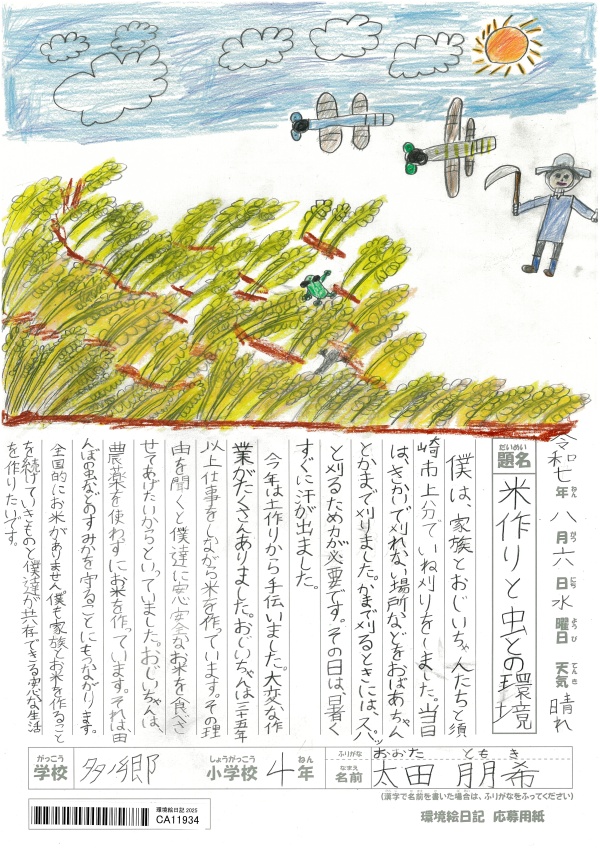 令和七年 八月 六日 水曜日 天気 晴れ
ねん がつ にち ようび てんき
だいめい
題名 米作りと虫との環境
僕は、家族とおじいちゃんたちと須
崎市上分でいね刈りをしました。当日
は、きかいで刈れない場所などをおばあちゃん
とかまで刈りました。かまで刈るときには、スパッ
と刈るため力が必要です。その日は、日暑く
すぐに汗が出ました。
今年は土作りから手伝いました。大変な作
業がたくさんありました。おじいちゃんは三十五年
以上仕事をしながら米を作っています。その理
由を聞くと僕達に安心安全なお米を食べさ
せてあげたいからといっていました。おじいちゃんは、
農薬を使わずにお米を作っています。それは、田
んぼの虫などのすみかを守ることにもつながります。
全国的にお米がありません。僕も家族とお米を作ること
を続けていきものと僕達が共存できる安心な生活
を作りたいです。
がっこう しょうがっこう ねん ふりがな おおた ともき
学校 多ノ郷 小学校 4年 なまえ 名前 太田 朋希
(漢字で名前を書いた場合は、ふりがなをふってください)
環境絵日記 応募用紙
環境絵日記 2025
CA11934